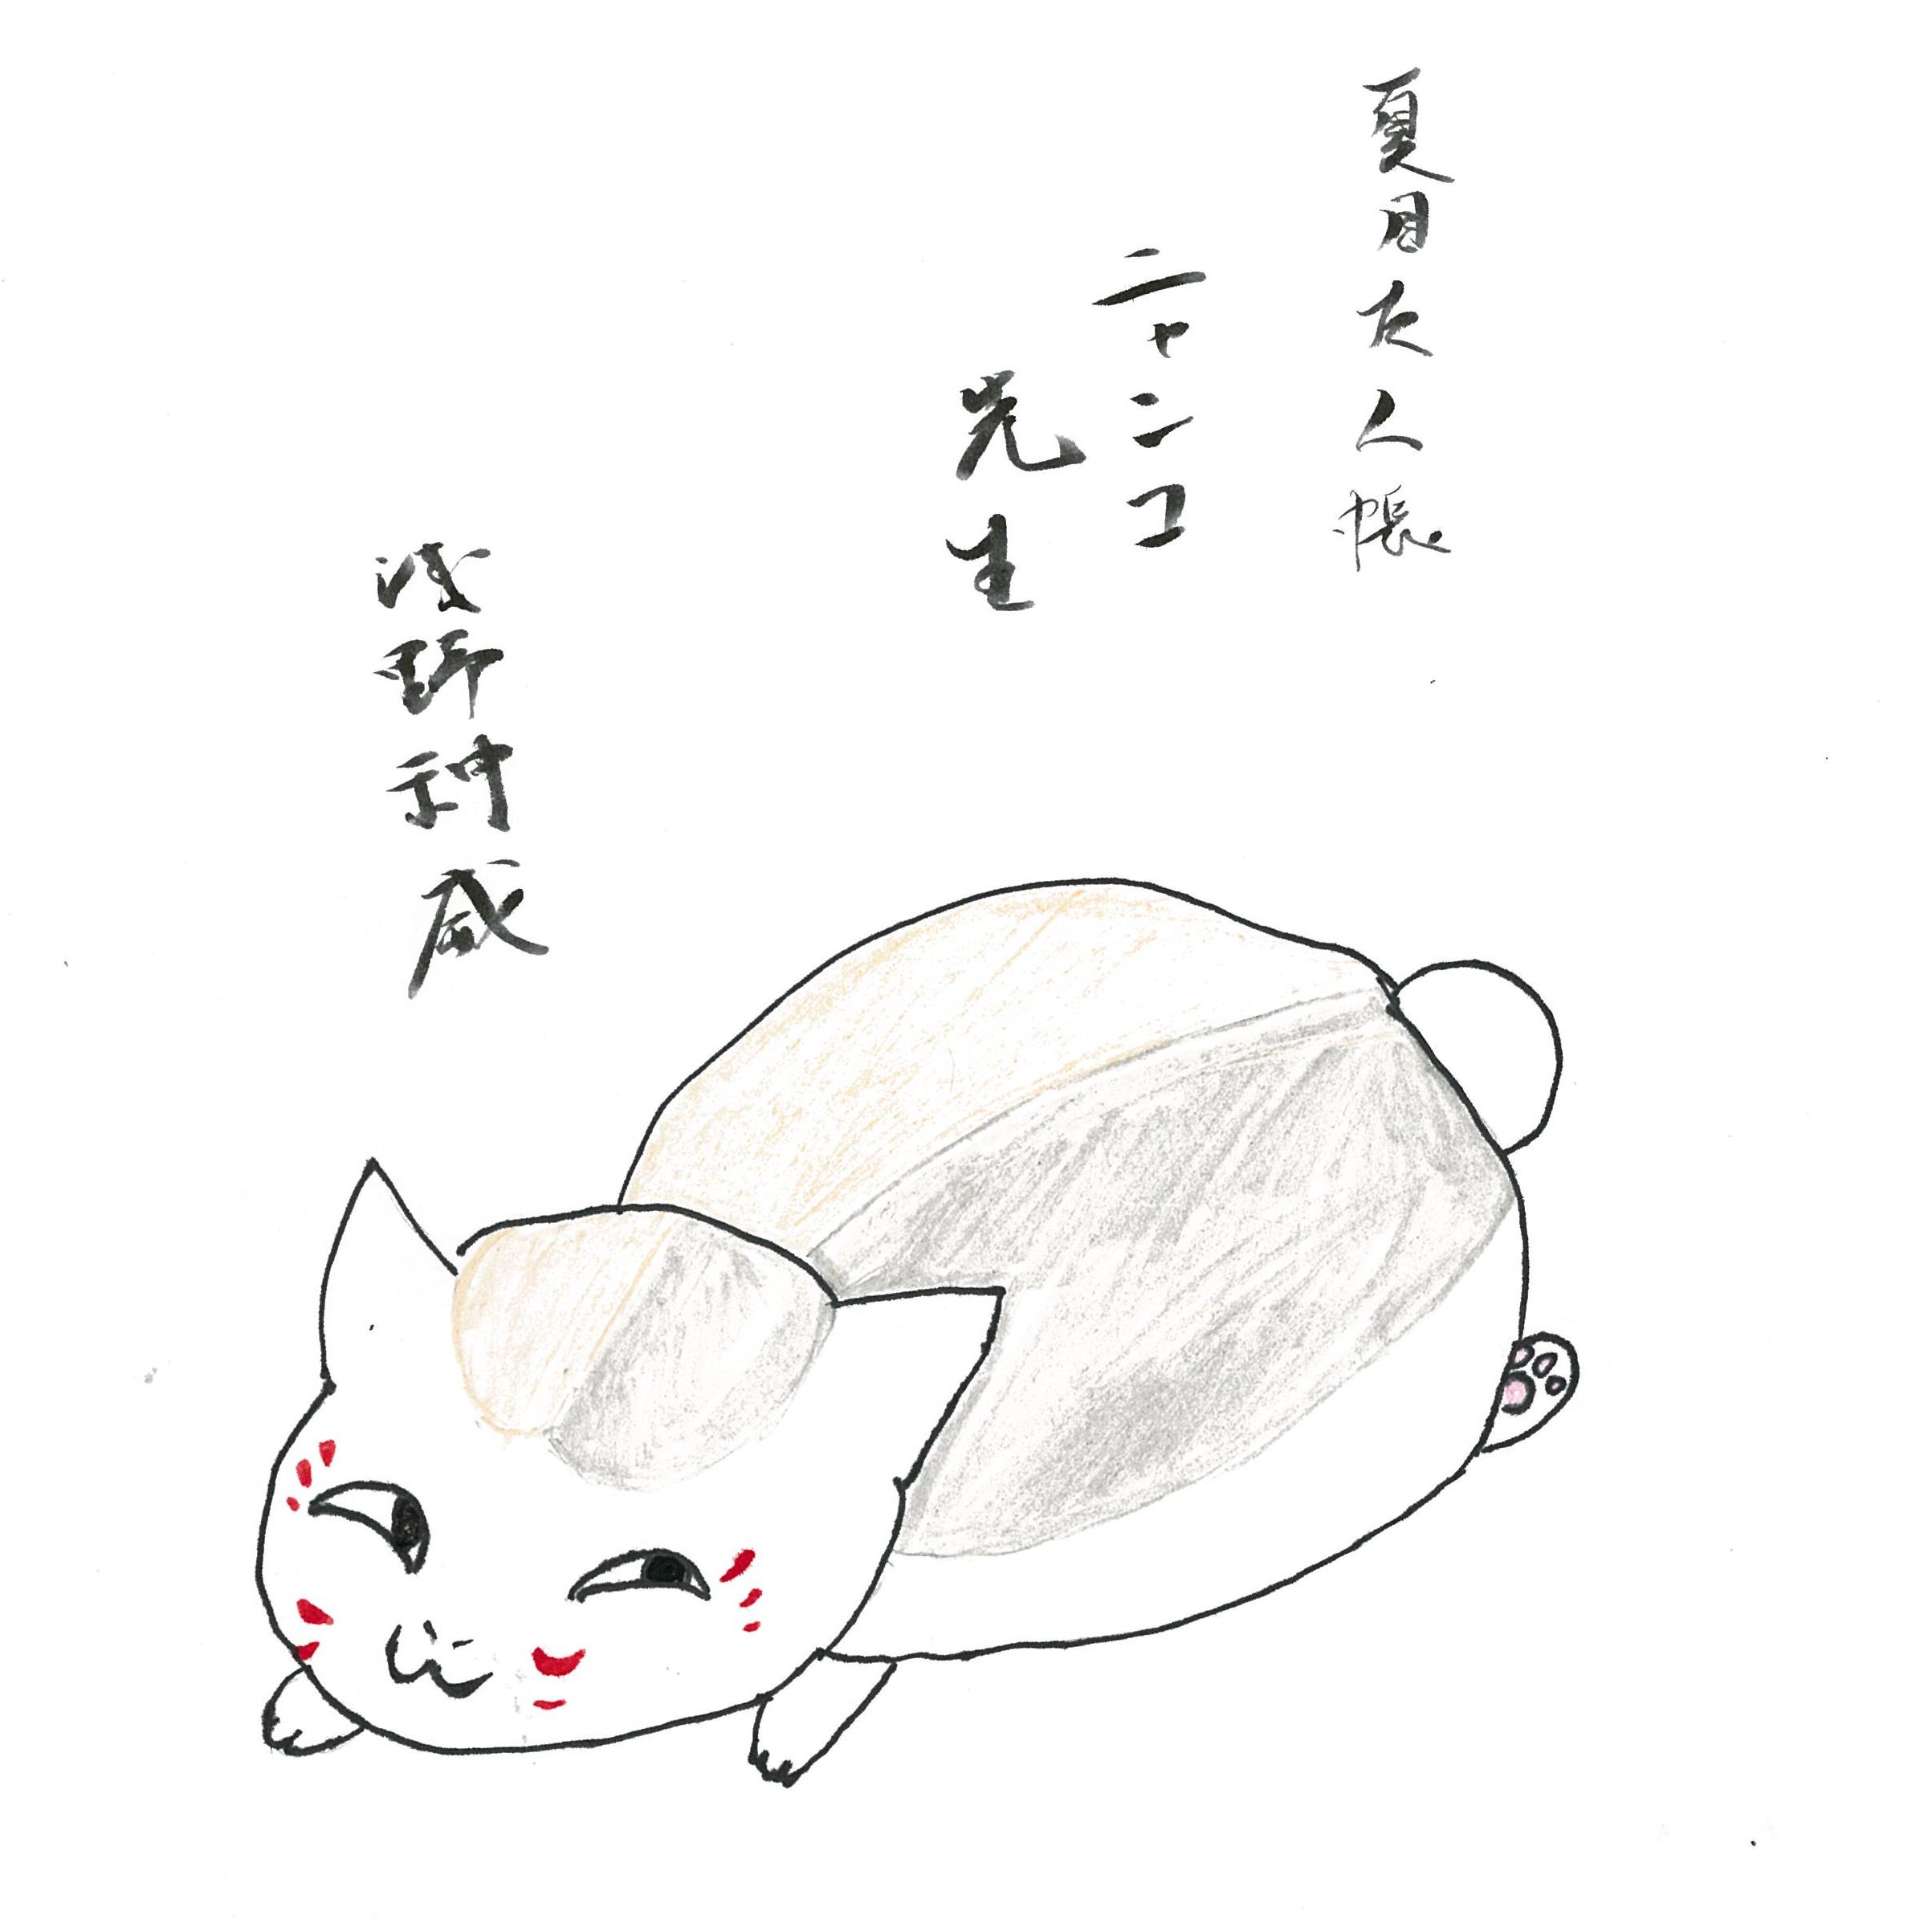 夏目友人帳
ニャンコ
先生
浅野神威